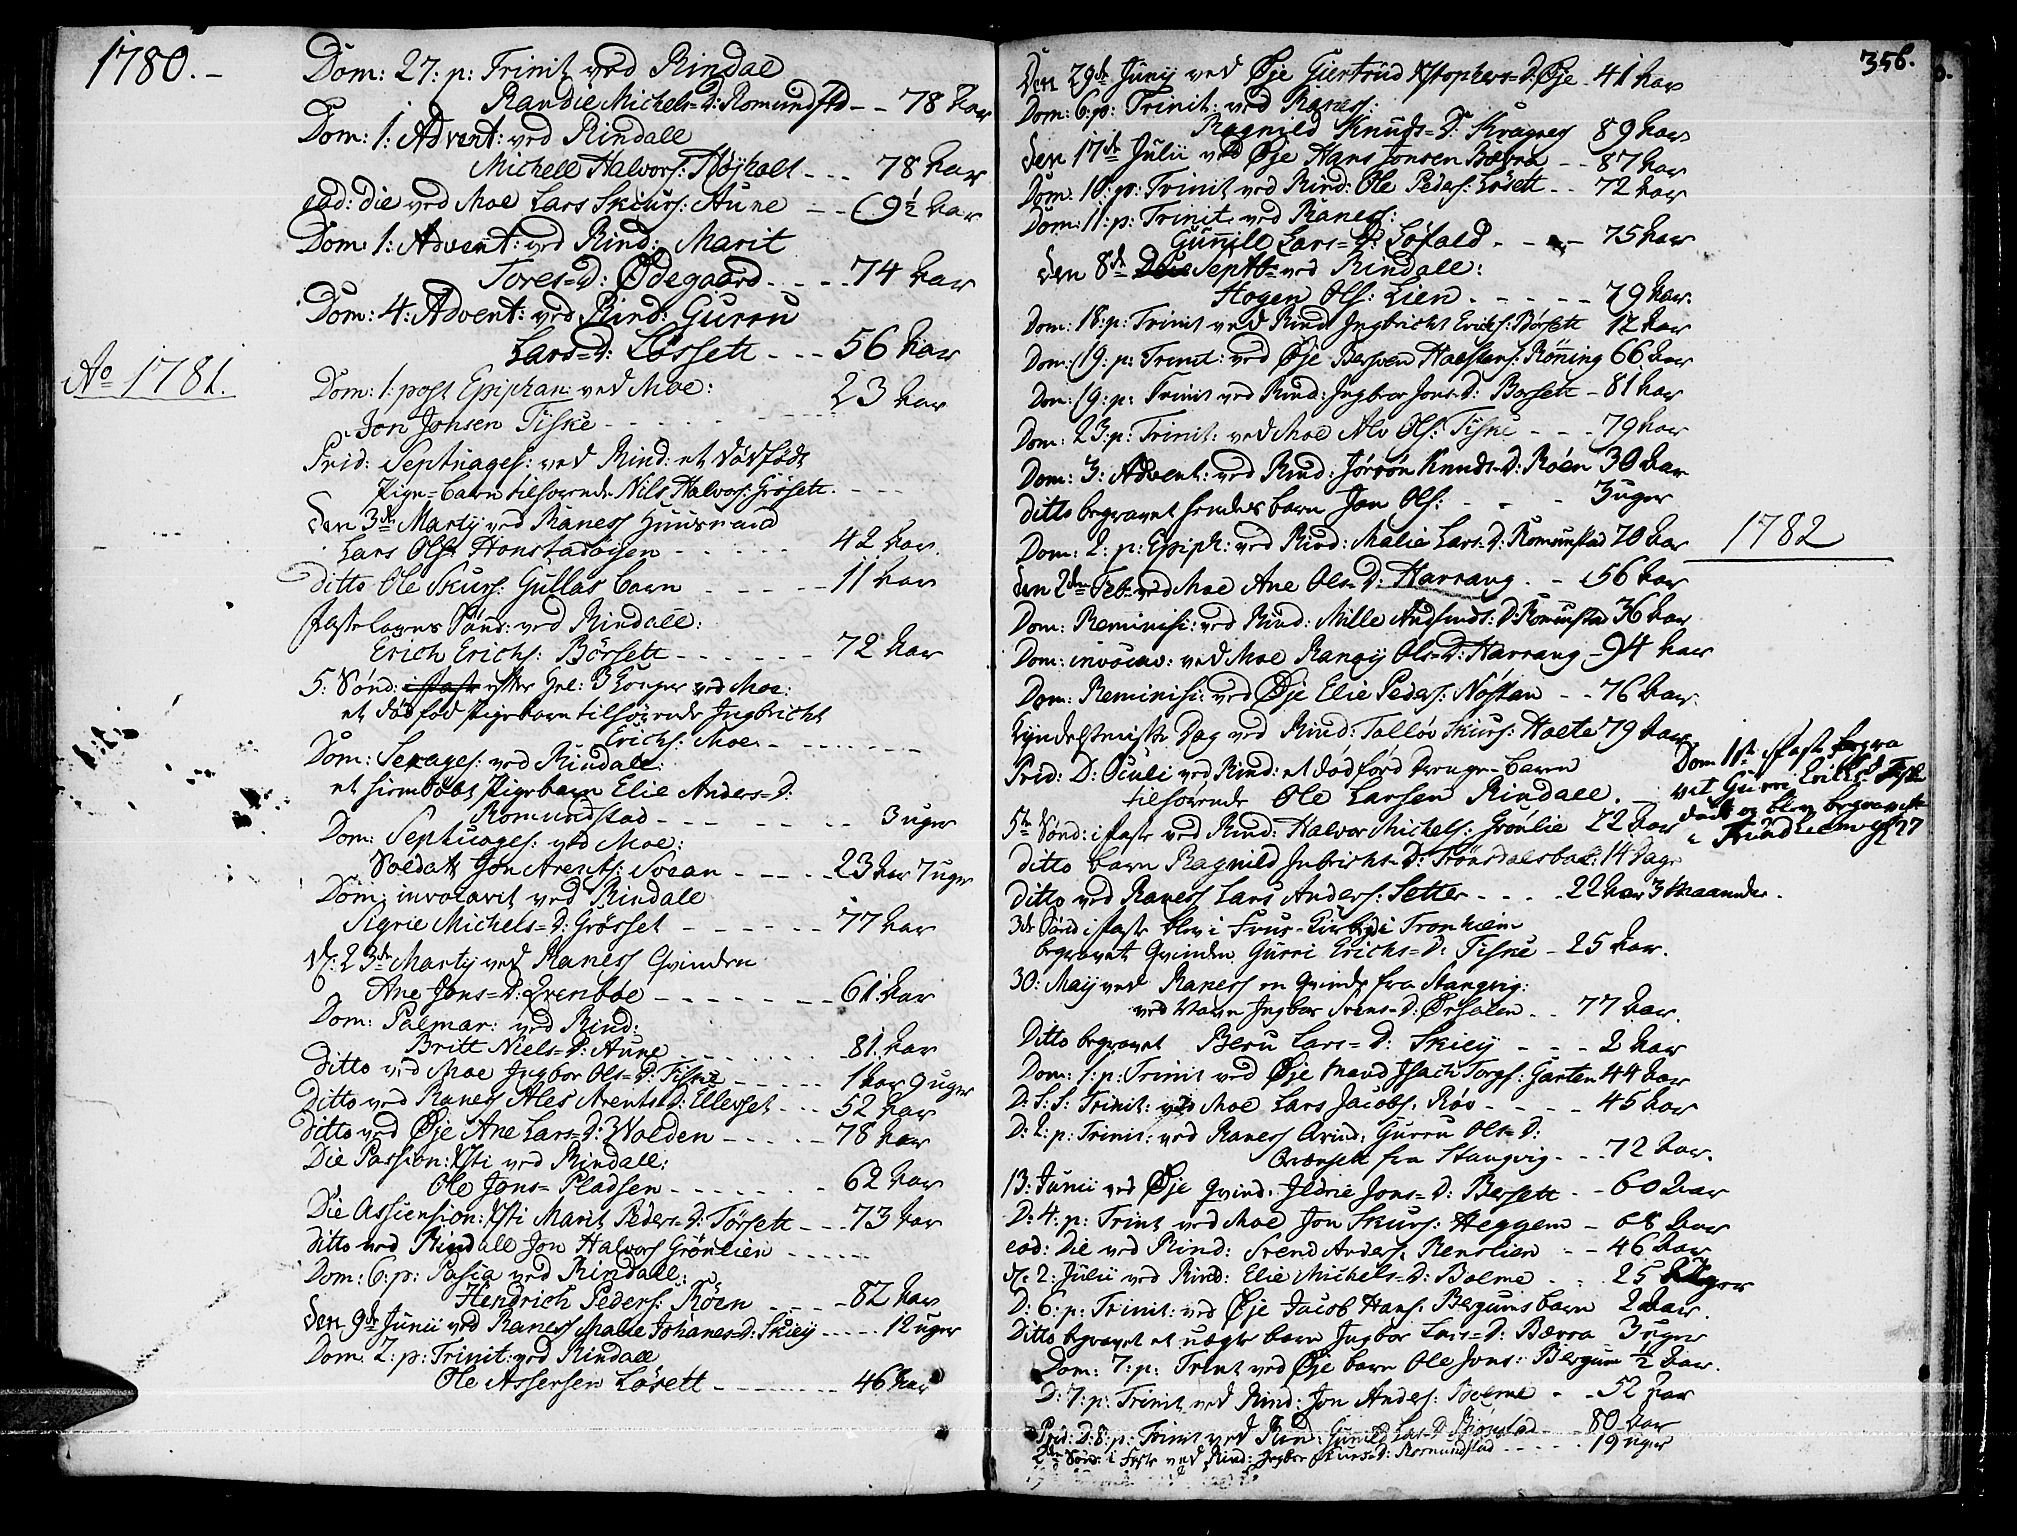 1780.-
Dom: 27: p: Trinit ved Rindal
Randie Michels=D: Romundstd -- 78 aar
Dom: 1: Advent: ved Rindall
Michell Halvors: Høyholt --- 78 aar
ead: die ved Moe Lars Skiurs: Aune -- 9½ aar
Dom: 1: Advent: ved Rind: Marit
Tores=D: Ødegaard ---- 74 aar
Dom: 4: Advent: ved Rind: Gurru
Lars=D: Løssett --- 56 aar
Ao 1781.
Dom: 1: post Epiphan: ved Moe:
Jon Johsen Tiske ---- 23 aar
Prid: Septuages: ved Rind: et dødfødt
Pige=barn tilhørende Nils Halvors: Grøsett. ---
den 3de Martij ved Raness Huusmand
Lars Ols: Honstadøyen ----- 42 aar.
Ditto Ole Skurs: Gullas barn ----- 11 aar
Fastelavns Sönd: ved Rindall:
Erich Erichs: Börsett ------ 72 aar
5: Sönd: efter Hel: 3 Konger ved Moe:
et död föd Pigebarn tilhörende Ingbricht
Erichs: Moe. --------
Dom: Sexages: ved Rindall:
et hiemdöbt Pigebarn Elie Anders=D:
Romundstad ------ 3 uger
Dom: Septuages: ved Moe:
Soldatt Jon Arents: Svean ----- 23 aar 7 uger
Dom: invocavit ved Rindall
Sigrie Michels=D: Grösset ------ 77 aar
d: 23de Martij ved Raness Qvinden
Ane Jons=D: Qvenboe ------- 61 aar
Dom: Palmar: ved Rind:
Britt Niels=D: Aune ------- 81. aar
Ditto ved Moe Ingbor Ols=D: Tiske ----- 1 aar 9 uger
Ditto ved Raness Ales Arents=D: Ellevset --- 52 aar
Ditto ved Øje Ane Lars=D: Wolden ----- 78 aar
Die Passion: Xsti ved Rindall:
Ole Jons= Pladsen ------- 62 aar
Die Assension: Xsti Marit Peders=D: Törsett --- 73 aar
Ditto ved Rindall Jon Halvors Grönlien ------
Dom: 6: p: Pasca ved Rindall:
Hendrich Peders: Röen ---- 82 aar
den 9de Junii ved Raness Malie Johanes=D: Skiey ----- 12 uger
Dom. 2: p: Trinit: ved Rindall
Ole Assersen Lösett -------- 46 aar
356.
Den 29de Junij ved Øje Giertrud Xstophers=D: Øje - 41 aar
Dom: 6: p: Trinit: ved Raness:
Ragnild Knuds=D: Kragnes 89 aar
den 17de Julii ved Øje Hans Jonsen Bævra -- 87 aar
Dom: 10: p: Trinit ved Rind: Ole Peders: Lösett -- 72 aar
Dom: 11: p: Trinit: ved Raness:
Gunnild Lars=D: Löfald ---- 75 aar
den 8de Septb= ved Rindall:
Hogen Ols: Lien. ----- 79 aar.
Dom: 18: p: Trinit ved Rind: Ingbricht Erichs: Börsett 12 aar
Dom: 19: p: Trinit: ved Øje Bersven Halstens: Rönning 66 aar
Dom: 19: p: Trinit ved Rind: Ingbor Jons=D: Borsett - 81 aar
Dom: 23: p: Trinit: ved Moe Alv Ols: Tiske --- 79 aar
Dom: 3: Advent: ved Rind: Jörrön Knuds=D: Röen 30 aar
Ditto begravet hendes barn Jon Ols: --- 3 uger
1782
Dom: 2: p: Epiph: ved Rind: Malie Lars=D: Romunstad 70 aar
den 2den Feb= ved Moe Ane Ols=D: Harrang. -- 56 aar
Dom: Reminisc: ved Rind: Mille Amunds:D: Romunstad 36 aar
Dom: invocav: ved Moe Rangij Ols=D: Harrang - 94 aar
Dom: Reminisc: ved Øje Elie Peders: Nöstan -- 76 aar.
Kyndelsmisse Dag ved Rind: Tolløv Skurs: Holte 79 aar
Prid: D: Oculi ved Rind: et dödföd drenge=barn
tilhörende Ole Larsen Rindall. -
Dom 1st i Faste begra
vet Gurri Erichs=D Tiske
död og blev begravet
i Trundhiem
5te Sönd: i faste ved Rind: Halvor Michels: Grönlie 72 aar
Ditto barn Ragnild Inbrichs=D: Trönsdalsbak: 14 dage
Ditto ved Raness Lars Anders: Setter --- 22 aar 3 maaneder.
3de Sönd i faste blev i Frue-Kirke i Tronhiem
begravet Qvinden Gurri Erichs=D: Tiske - 25 aar.
30: Maij ved Raness en Qvinde fra Stangvig:
ved Navn Ingbor Svens=D: Ørsalen -- 77 aar.
Ditto begravet Beru Lars=D: Skiey --- 2 aar
Dom: 1: p: Trinit ved Øje Mand Isach Torgs: Garten 44 aar
D: S: S: Trinit: ved Moe Lars Jacobs: Röv ---- 45 aar
D: 2: p: Trinit: ved Raness Qvind: Gurru Ols=D:
Qvænsett fra Stangvig. --- 72 aar.
13: Junii ved Øje Qvind: Ildrie Jons=D: Bersett -- 60 aar
D: 4: p: Trinit ved Moe Jon Skurs: Heggem - 68 aar
ead: Die ved Rind: Svend Anders: Renslien -- 46 aar
d: 2: Julii ved Rind: Elie Michels=D: Bolme -- 25 uger
D: 6: p: Trinit: ved Øje Jacob Hans: Bergums barn 2 aar.
Ditto begravet et uægte barn Ingbor Lars=D: Bævra 3 uger
Dom: 7: p: Trint ved Øje barn Ole Jons: Bergum ½ aar.
D: 7: p: Trinit ved Rind: Jon Anders: Bolme -- 52 aar
Prid: D: 8: p: Trinit ved Rind: Gunild Lars=D Björnstad -- 80 aar
2den Sönd: i Faste ved Rind: Ingbor Skurs=D: Romundstad ----- 19 uger